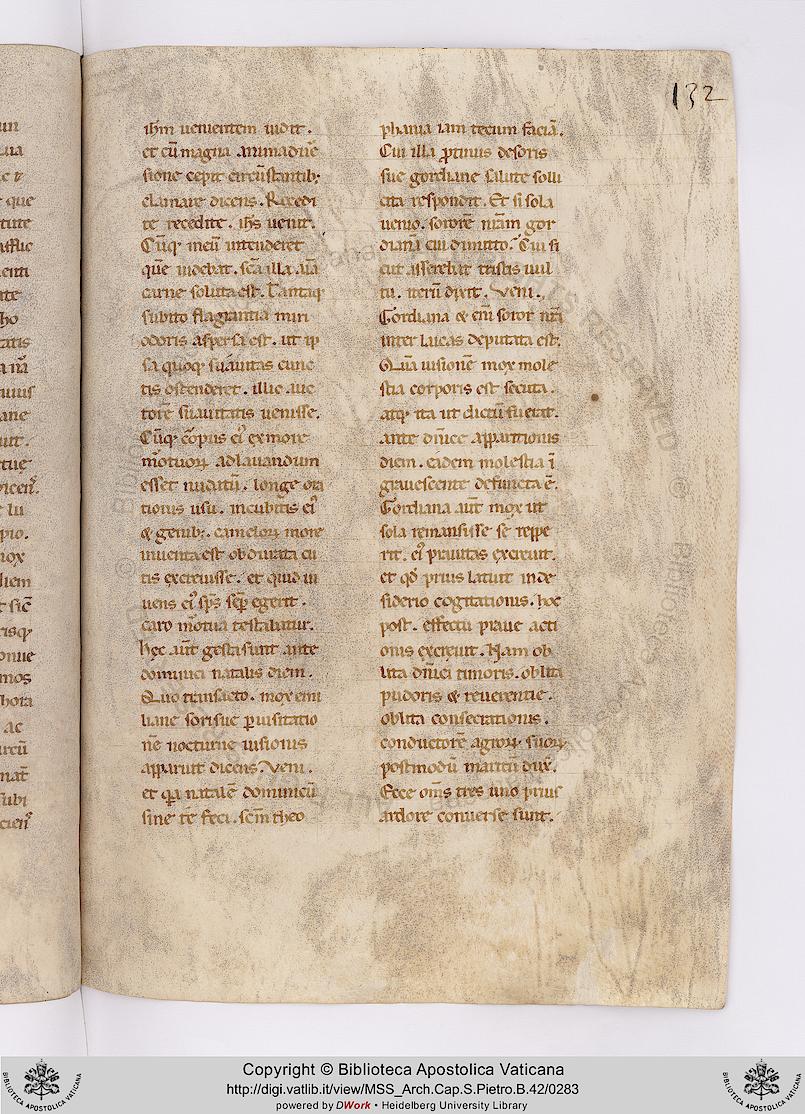 132
ihm uenientem uidit.
et cū magna animaduē
sione cepit circūstantib;
clamare dicens. Recedi
te recedite. ihs uenit.
Cūq; meū intenderet
quē uidebat. scā illa aīa
carne soluta est. Tantaq;
subito flagrantia miri
odoris aspersa est. ut ip
sa quoq; suauitas cunc
tis ostenderet. illic auc
torē suauitatis uenisse.
Cūq; corpus ei ex more
mortuorum ad lauandum
esset nudatū. longe ora
tionis usu. in cubitis ei
& genib; camelorum more
inuenta est obdurata cu
tis excreuisse. et quid ui
uens ei sps semp egerit.
caro mortua testabatur.
hęc aūt gesta sunt ante
dominici natalis diem.
Quo transacto. mox emi
liane sorisue p uisitatio
nē nocturne uisionis
apparuit dicens. Veni.
et qa natalē dominicū
sine te feci. scm theo
phania iam tecum faciā.
Cui illa protinus de soris
sue gordiane salute solli
cita respondit. Et si sola
uenio. sororē nrām gor
dianā cui dimitto. Cui si
cut asserebat tristis uul
tu. iterū dixit. Veni.
Gordiana & enī soror nrā
inter laicas deputata est.
Quā uisionē mox mole
stia corporis est secuta.
atq; ita ut dictū fuerat.
ante dnīce apparitionis
diem. eadem molestia ī
grauescente defuncta ē.
Gordiana aūt mox ut
sola remansisse se reppe
rit. ei prauitas excreuit.
et qd prius latuit in de
siderio cogitationis. hoc
post. effectu praue acti
onis exercuit. Nam ob
lita dnīci timoris. oblita
pudoris & reuerentie.
oblita consecrationis.
conductorē agrorum suorum
postmodū maritū dux̄.
Ecce om̄s tres uno prius
ardore conuerse sunt.
Copyright © Biblioteca Apostolica Vaticana
http://digi.vatlib.it/view/MSS_Arch.Cap.S.Pietro.B.42/0283
powered by DWork • Heidelberg University Library
BIBLIOTECA APOSTOLICA VATICANA
BIBLIOTECA APOSTOLICA VATICANA